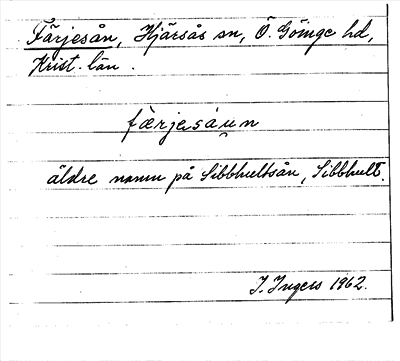 Färjesån, Hjärsås sn, Ö. Göinge hd,
Krist. län.
færjesåu̯n
äldre namn på Sibbhultsån, Sibbhult.
I. Ingers 1962.